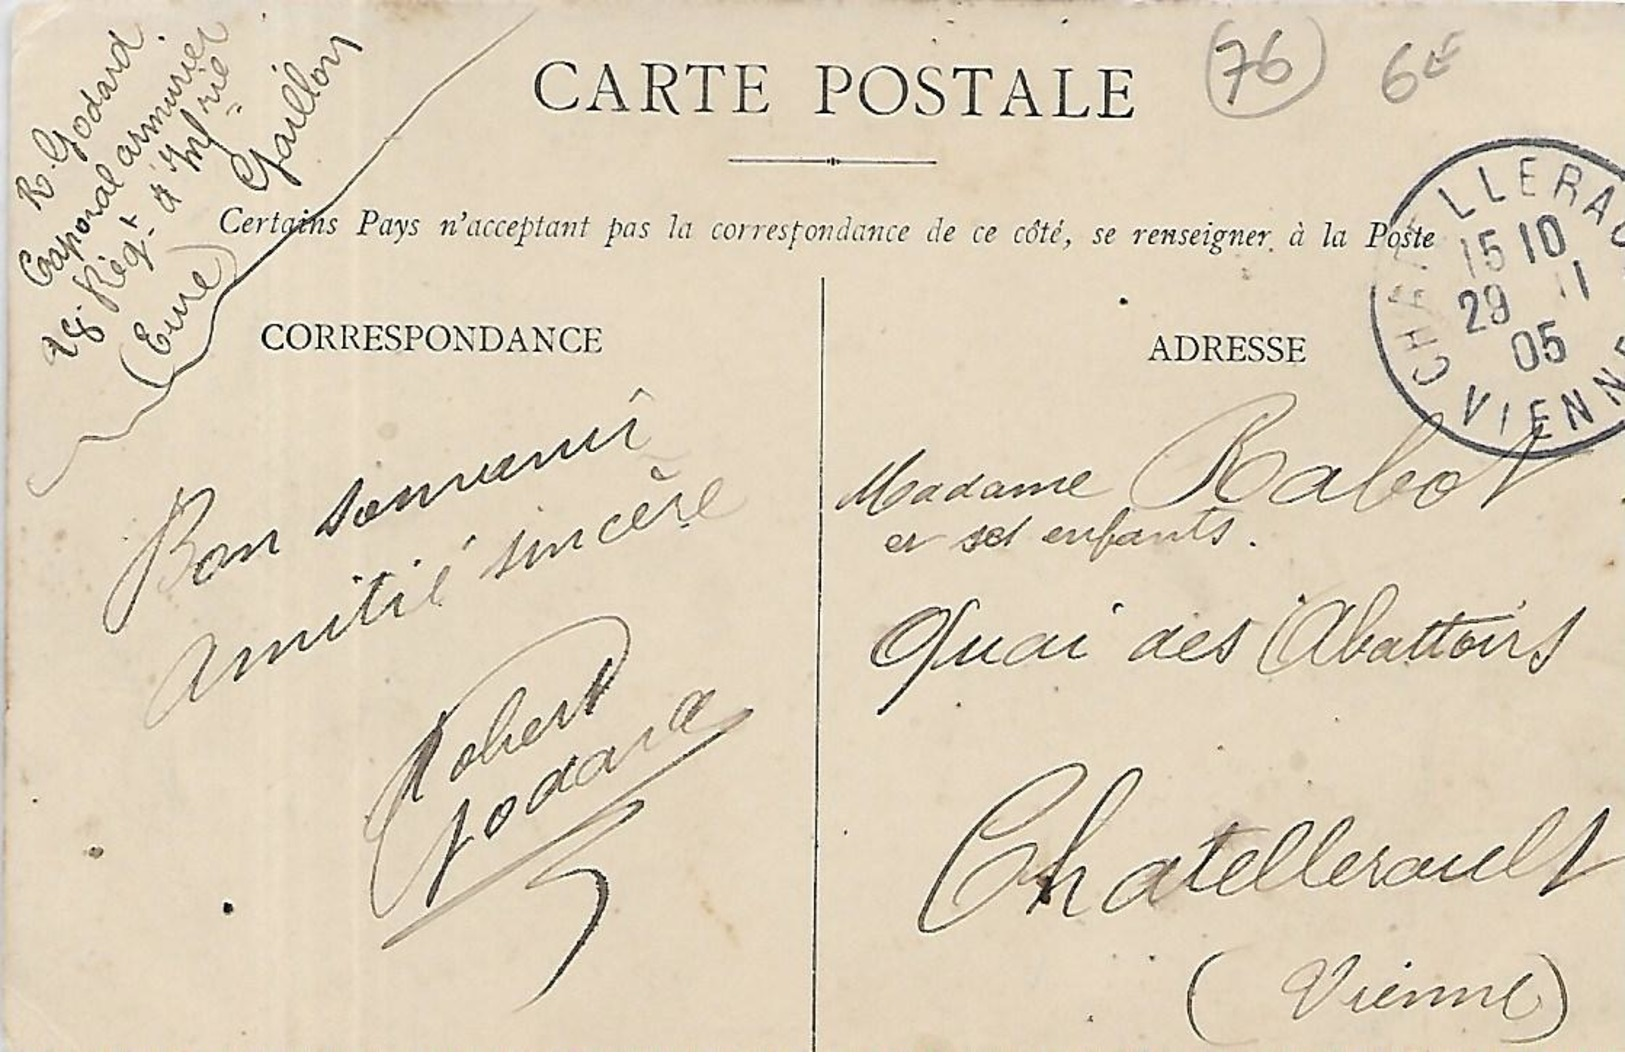 R. Godard
Caporal armurier
28. Régt. d'Infrie
Gaillon
(Eure)
CARTE POSTALE
76
6€
Certains Pays n'acceptant pas la correspondance de ce côté, se renseigner à la Poste
CORRESPONDANCE
Bon souvenir
amitié sincère
Robert
Godard
ADRESSE
CHATELLERAU
15 10
29 11
05
VIENNE
Madame Rabot
et ses enfants.
Quai des Abattoirs
Chatellerault
(Vienne)